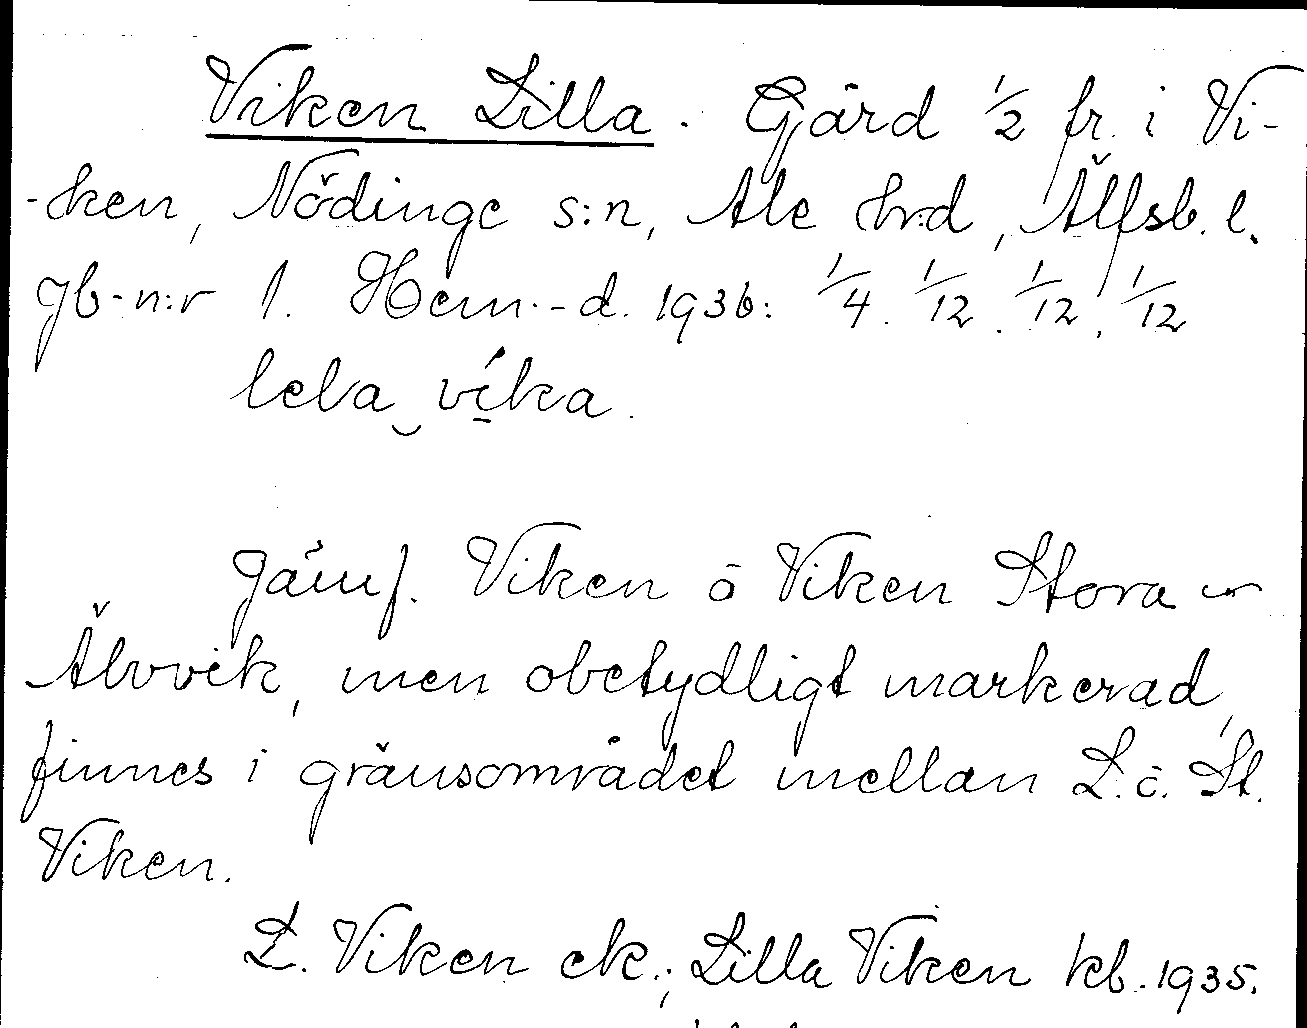 Viken Lilla. Gård 1/2 fr. i Vi-
-ken, Nödinge s:n, Ale hrd, Älfsb. l.
gb-n:r 1. Hem.-d. 1936: 1/4. 1/12. 1/12, 1/12
leba‿víka.
Jämf. Viken o Viken Stora
Älvvik, men obetydligt markerad,
finnes i gränsområdet mellan L. o. St.
Viken.
L. Viken ek.; Lilla Viken kb. 1935.